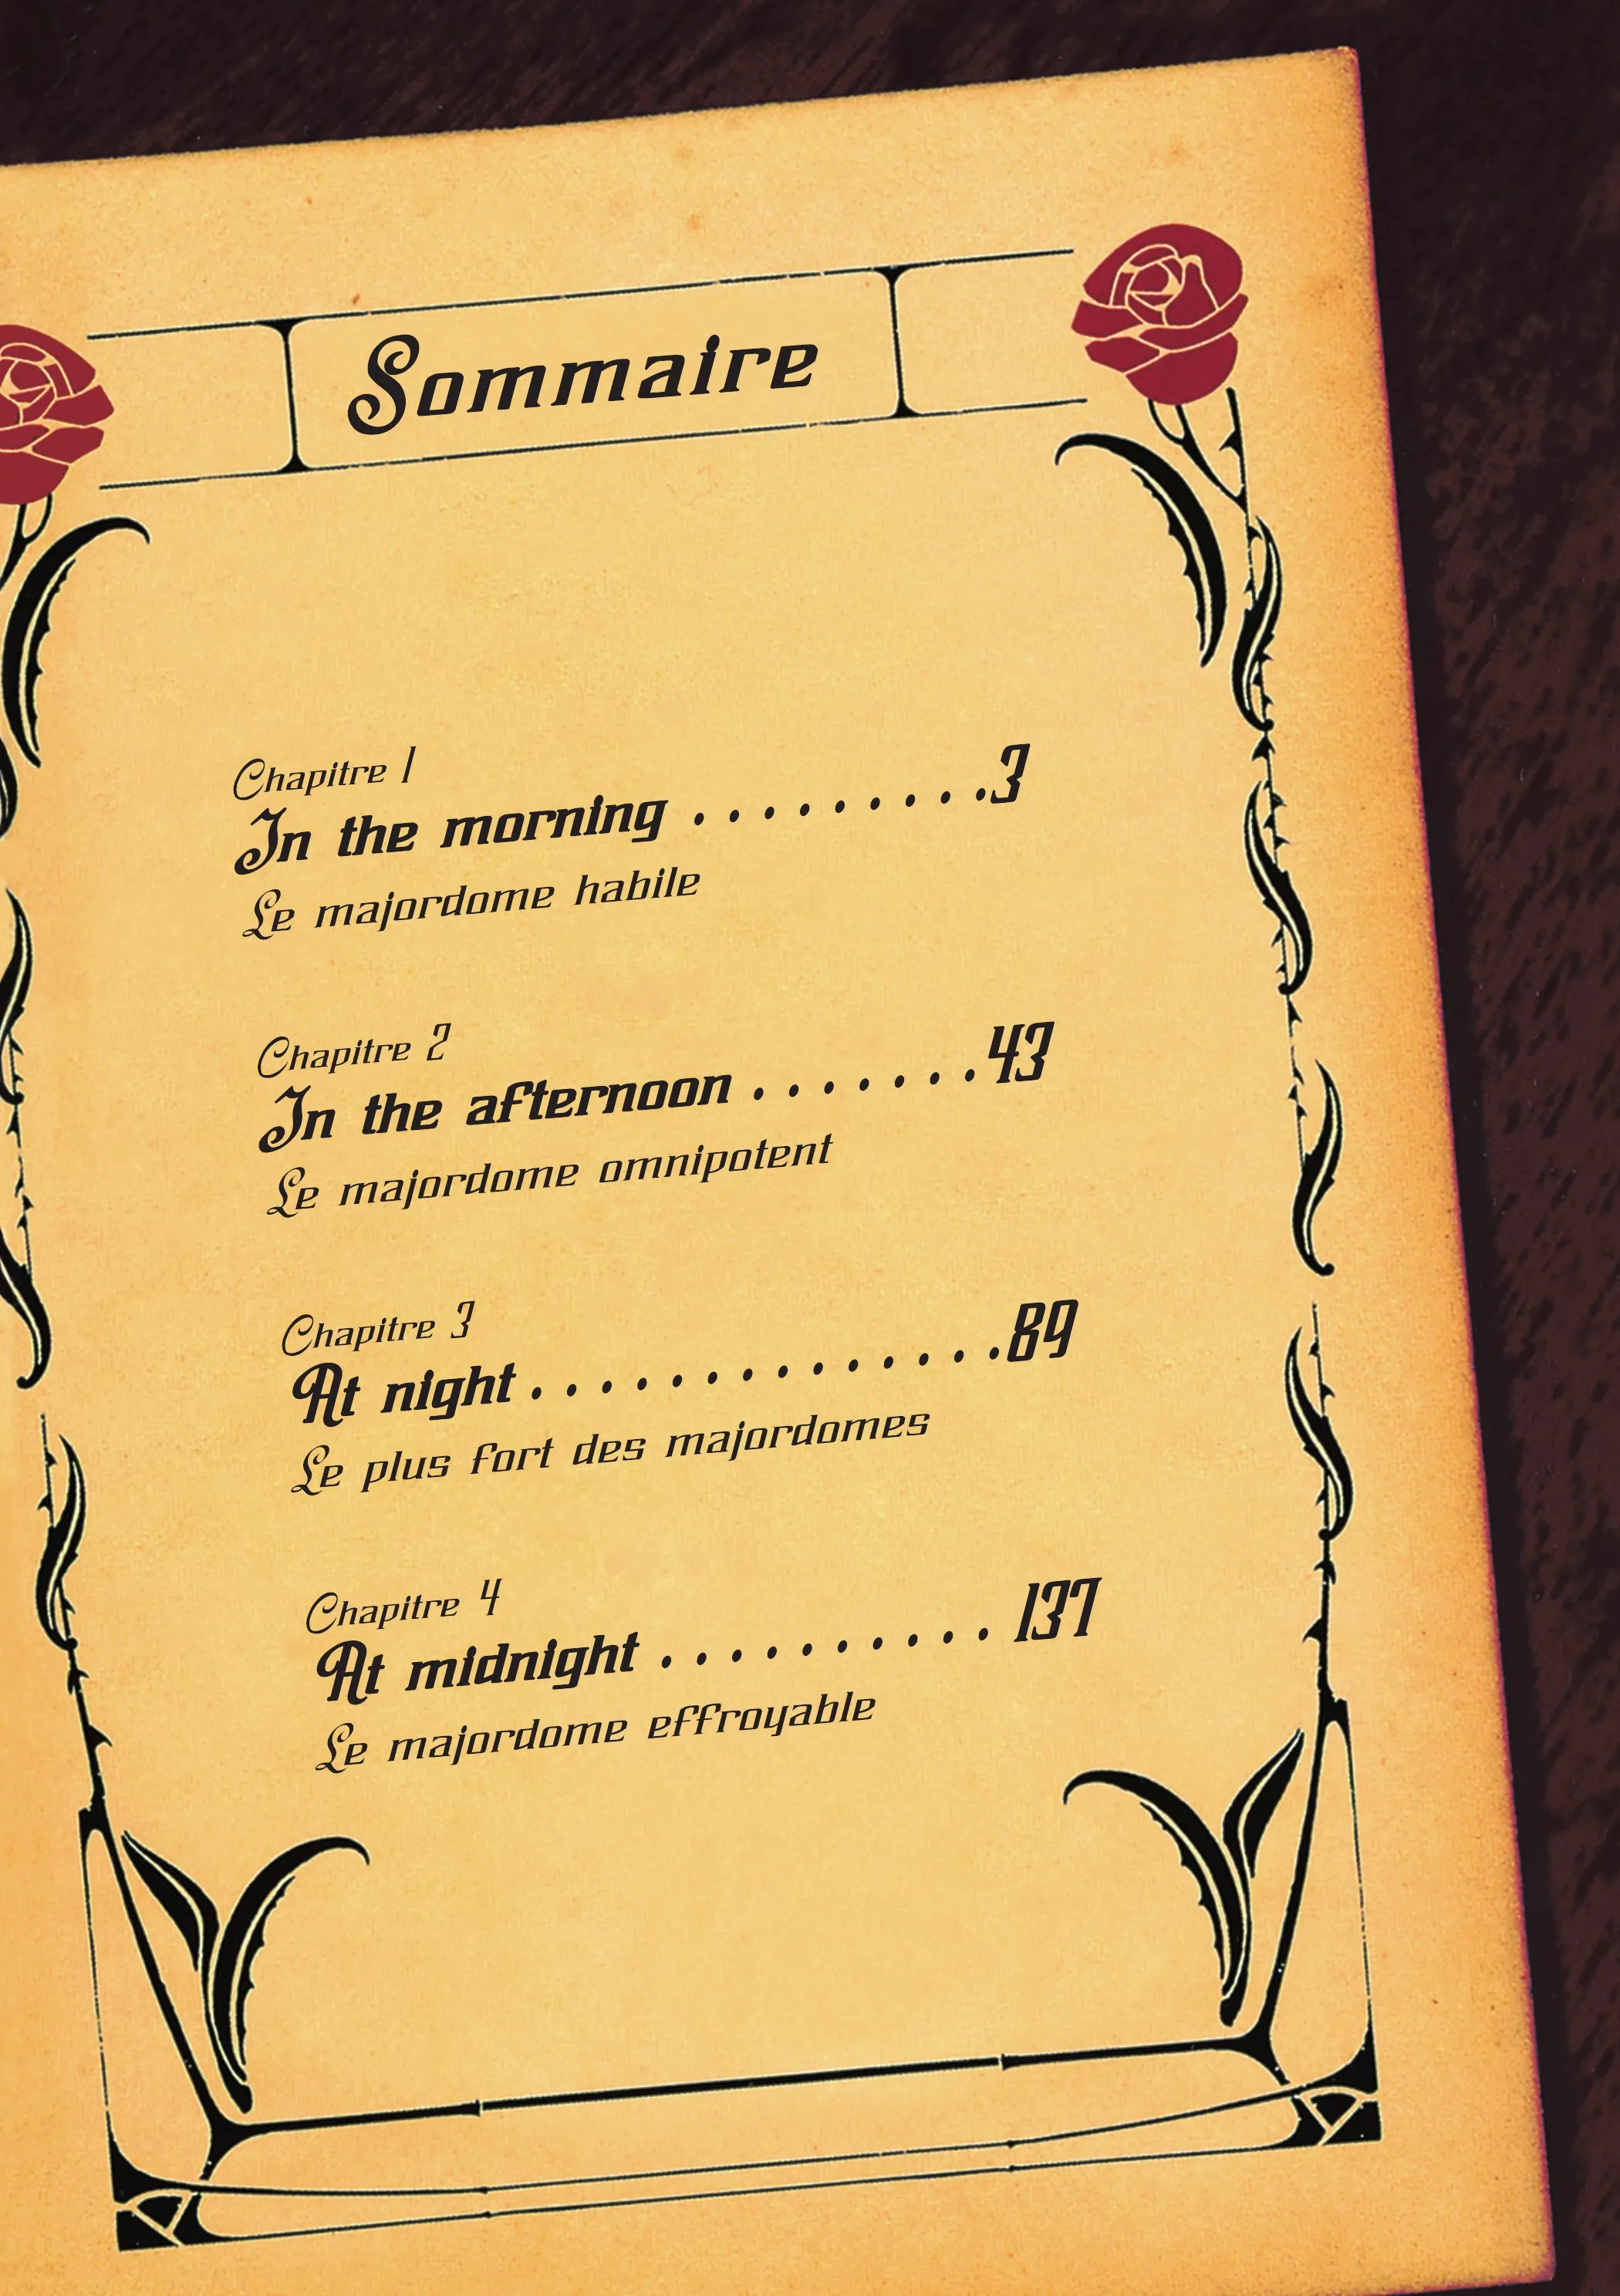 Sommaire
Chapitre 1
In the morning . . . . . . . . .3
Le majordome habile
Chapitre 2
In the afternoon . . . . . . .43
Le majordome omnipotent
Chapitre 3
At night . . . . . . . . . . . . . .89
Le plus fort des majordomes
Chapitre 4
At midnight . . . . . . . . . . 137
Le majordome effroyable